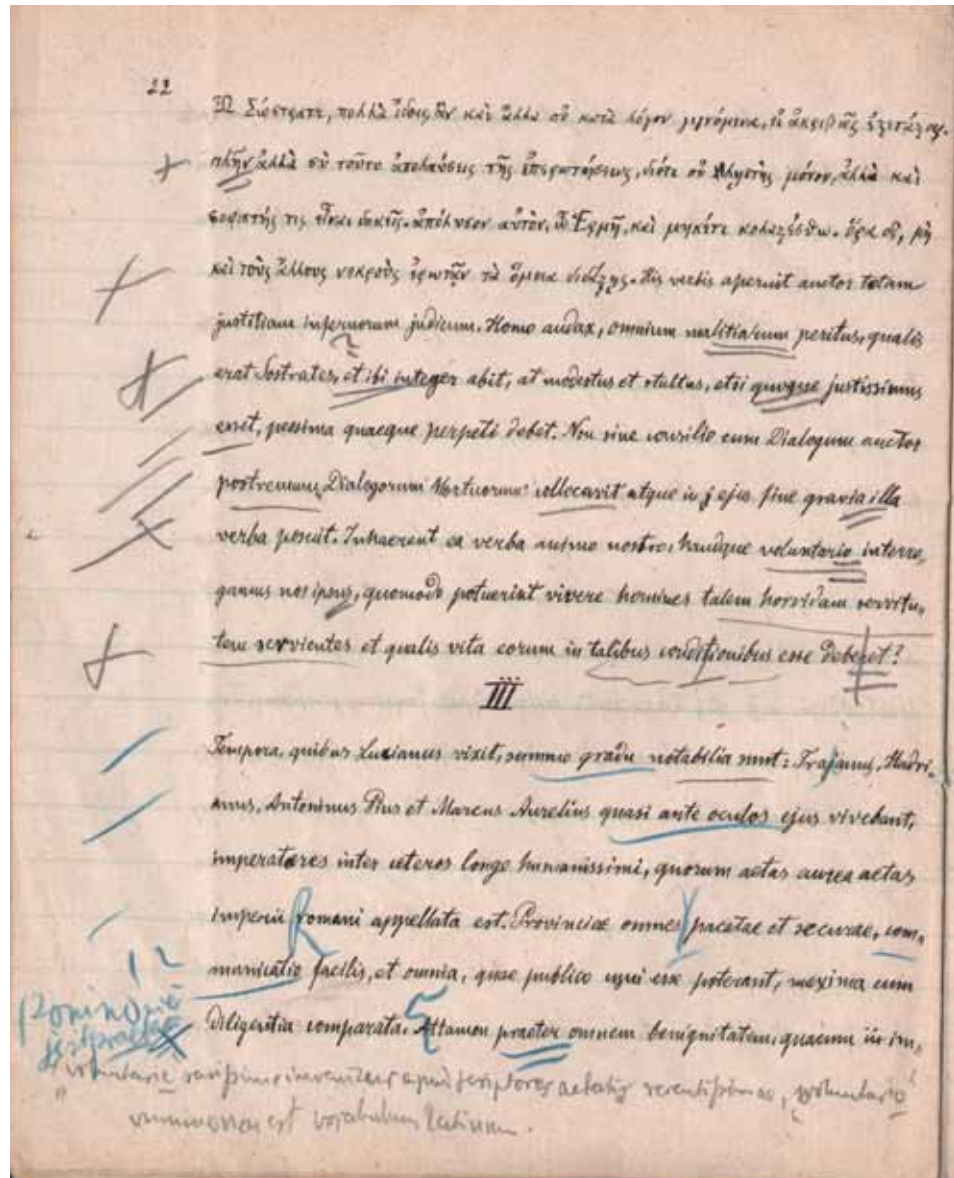 22
Ὦ Σώστρατε, πολλὰ ἴδοις ἂν καὶ ἄλλα οὐ κατὰ λόγον γιγνόμενα, εἰ ἀκριβῶς ἐξετάζοις.
πλὴν ἀλλὰ σὺ τοῦτο ἀπολαύσεις τῆς ἐπερωτήσεως, διότι οὐ λῃστὴς μόνον, ἀλλὰ καὶ
σοφιστής τις εἶναι δοκεῖς. ἀπόλυσον αὐτόν, ὦ Ἑρμῆ, καὶ μηκέτι κολαζέσθω. ὅρα δέ, μὴ
καὶ τοὺς ἄλλους νεκροὺς ἐρωτᾶν τὰ ὅμοια διδάξῃς. His verbis aperuit auctor totam
justitiam infernorum judicum. Homo audax, omnium malitiarum peritus, qualis
erat Sostrates, et ibi integer abit, at modestus et stultus, etsi quoque justissimus
esset, pessima quaeque perpeti debet. Non sine consilio eum Dialogum auctor
postremum Dialogorum Mortuorum collocavit atque in ejus fine gravia illa
verba posuit. Inhaerent ea verba animo nostro, haudque voluntario interro„
gamus nos ipsus, quomodo potuerint vivere homines talem horridam servitu„
tem servientes et qualis vita eorum in talibus conditionibus esse deberet?
III
Tempora, quibus Lucianus vixit, summo gradu notabilia sunt: Trajanus, Hadri„
anus, Antoninus Pius et Marcus Aurelius quasi ante oculos ejus vivebant,
imperatores inter veteros longe humanissimi, quorum aetas aurea aetas
imperii romani appellata est. Provinciae omnes pacatae et securae, com„
municatio facilis, et omnia, quae publico usui esse poterant, maxima cum
diligentia comparata. Attamen praeter omnem benignitatem, quacum ii im„
"voluntarie rarissime invenitur apud scriptores aetatis recentissimae, voluntario"
est vocabulum latinum.